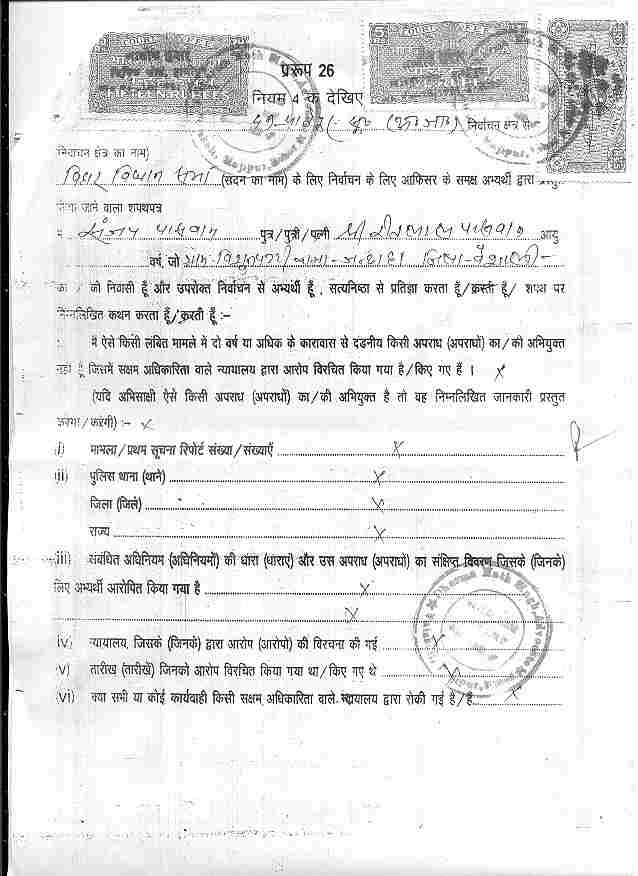 COURT FEE
COURT FEE
प्ररूप 26
नियम 4 के देखिए
(अ० जा०) निर्वाचन क्षेत्र से
निर्वाचन क्षेत्र का नाम)
विधान सभा (सदन का नाम) के लिए निर्वाचन के लिए आफिसर के समक्ष अभ्यर्थी द्वारा प्रस्तुत
किया जाने वाला शपथपत्र
मैं संजय पासवान पुत्र/पुत्री/पत्नी श्री पासवान आयु
वर्ष, जो ग्राम थाना- जिला- वैशाली-
का / की निवासी हूँ और उपरोक्त निर्वाचन से अभ्यर्थी हूँ, सत्यनिष्ठा से प्रतिज्ञा करता हूँ/करती हूँ/ शपथ पर
निम्नलिखित कथन करता हूँ/करती हूँ :-
मैं ऐसे किसी लंबित मामले में दो वर्ष या अधिक के कारावास से दंडनीय किसी अपराध (अपराधों) का/की अभियुक्त
नहीं हूँ जिसमें सक्षम अधिकारिता वाले न्यायालय द्वारा आरोप विरचित किया गया है/किए गए हैं । x
(यदि अभिसाक्षी ऐसे किसी अपराध (अपराधों) का/की अभियुक्त है तो वह निम्नलिखित जानकारी प्रस्तुत
करेगा/करेगी) :- x
i) मामला/प्रथम सूचना रिपोर्ट संख्या/संख्याएँ x
ii) पुलिस थाना (थाने) x
जिला (जिले) x
राज्य x
iii) संबंधित अधिनियम (अधिनियमों) की धारा (धाराएं) और उस अपराध (अपराधों) का संक्षिप्त विवरण जिसके (जिनके)
लिए अभ्यर्थी आरोपित किया गया है x
x
iv) न्यायालय, जिसके (जिनके) द्वारा आरोप (आरोपो) की विरचना की गई x
v) तारीख (तारीखें) जिनको आरोप विरचित किया गया था/किए गए थे x
vi) क्या सभी या कोई कार्यवाही किसी सक्षम अधिकारिता वाले न्यायालय द्वारा रोकी गई है/हैं x